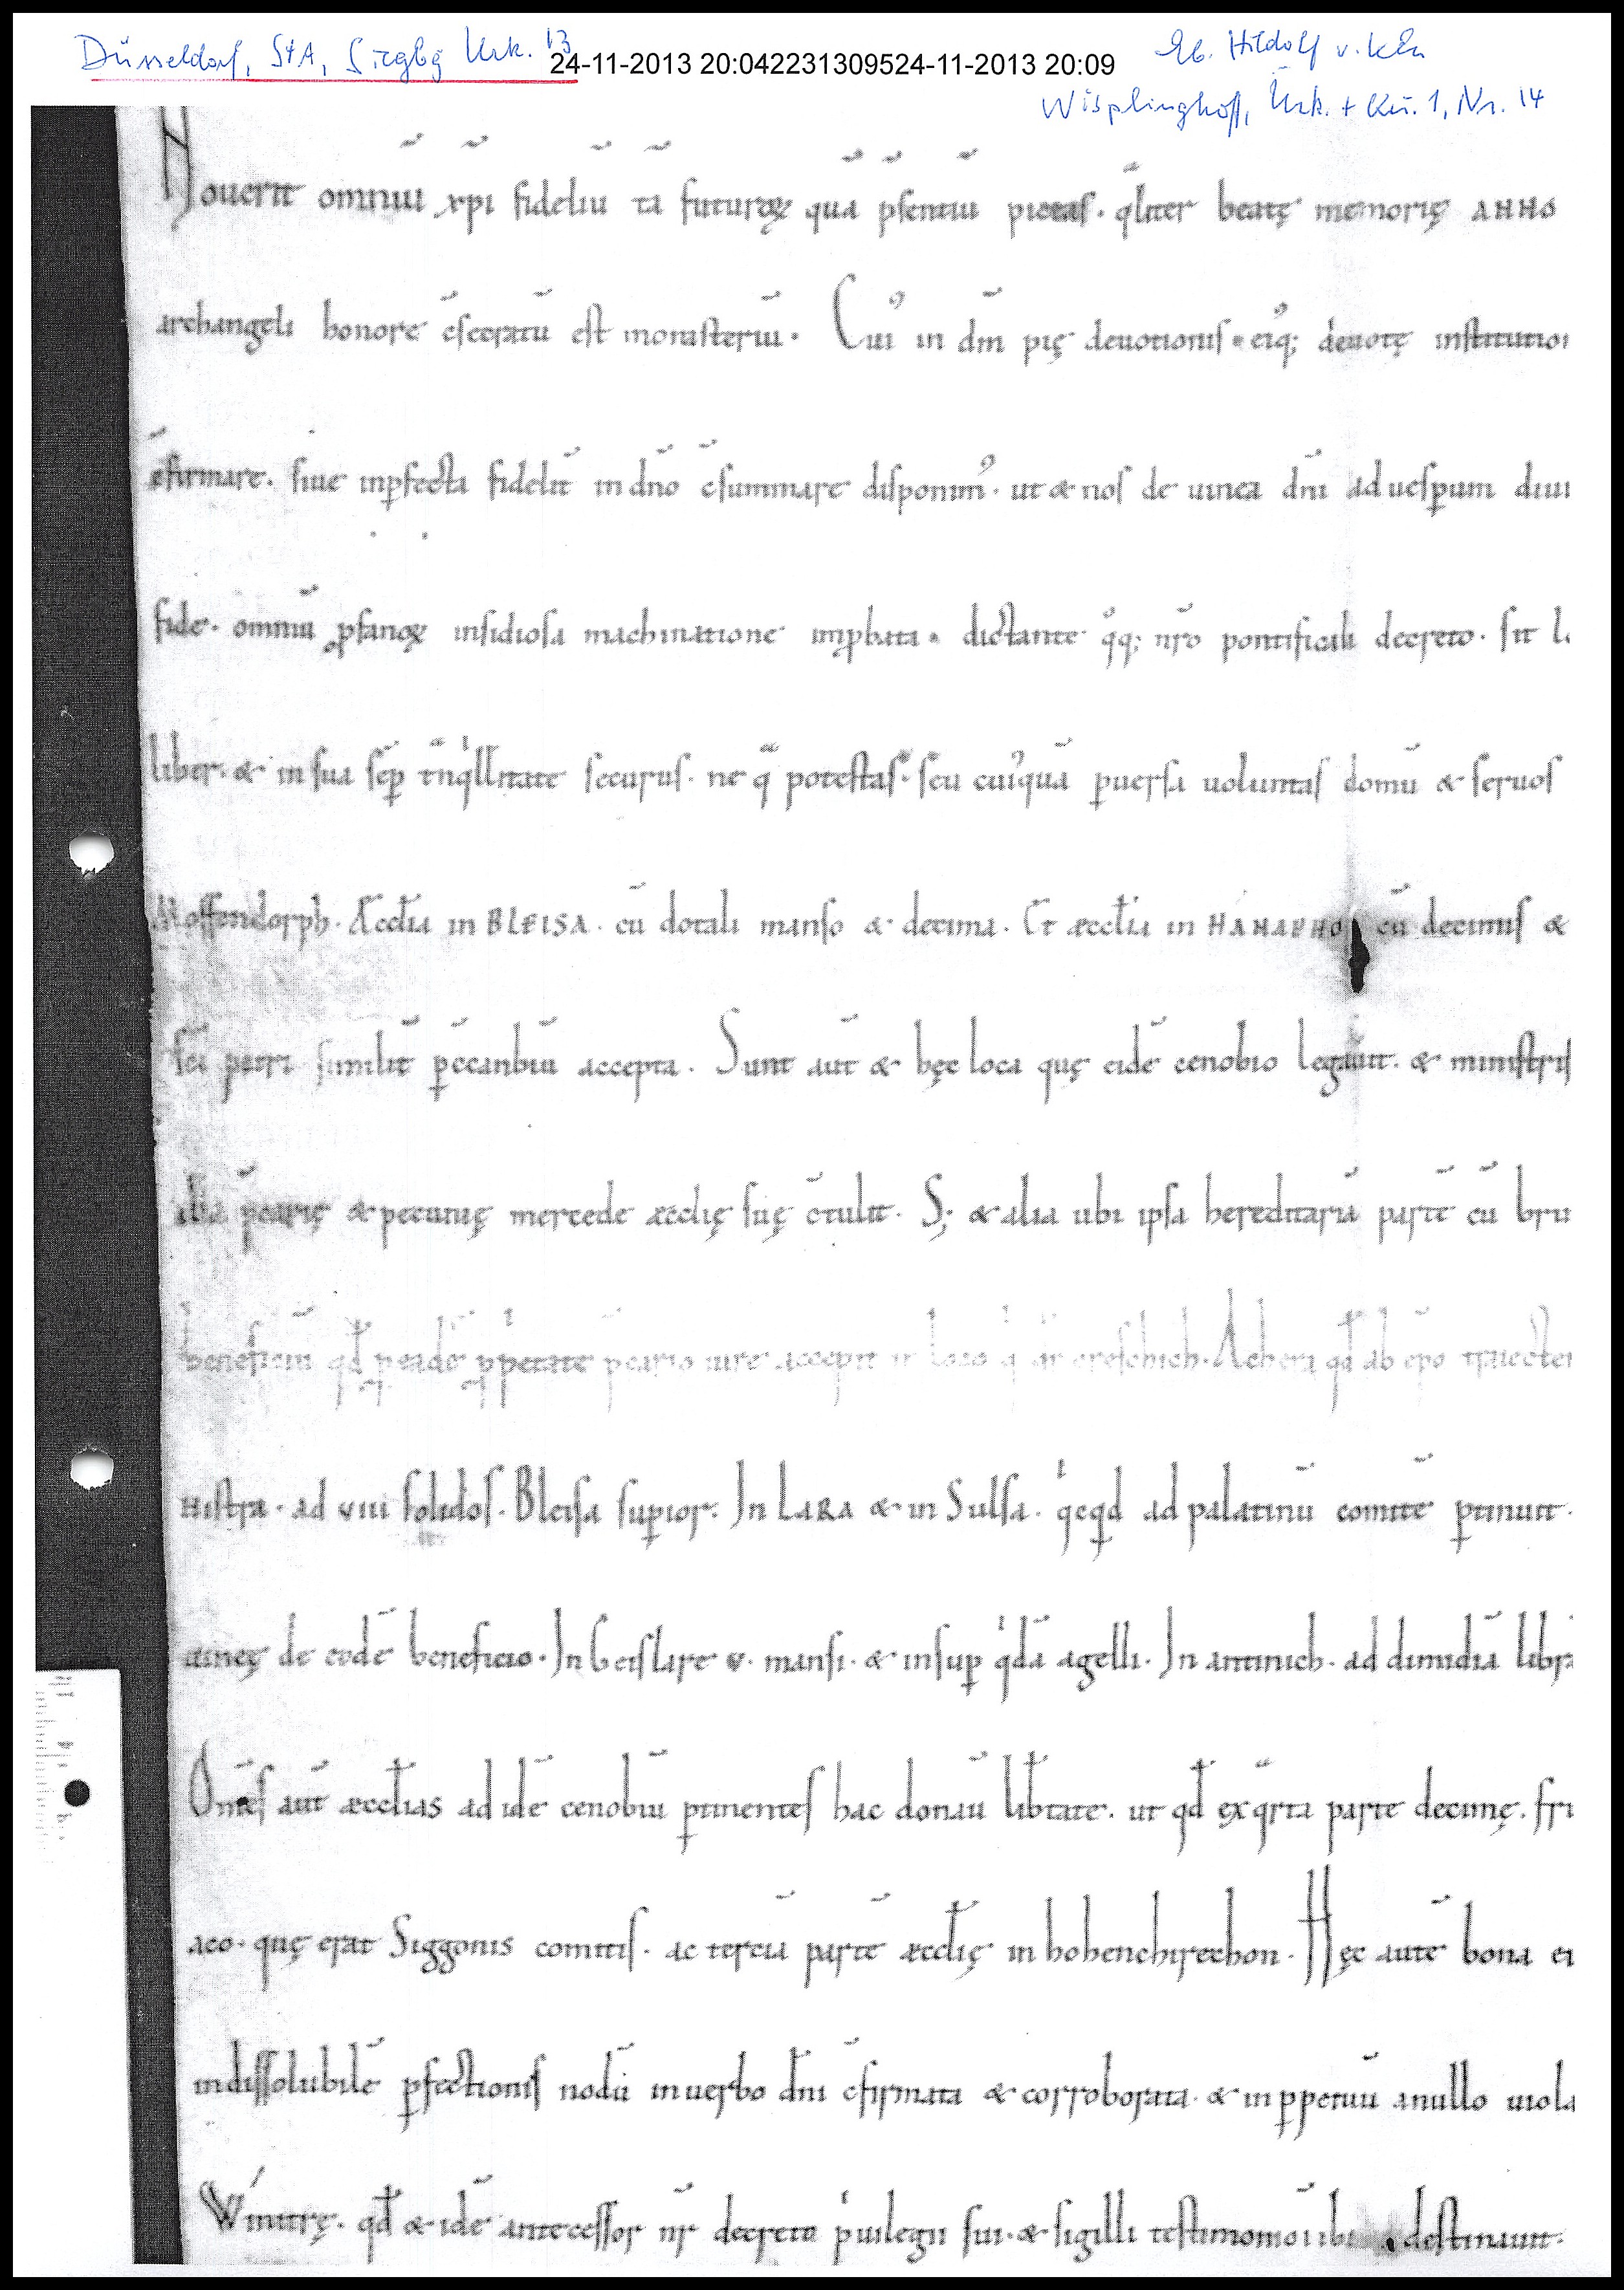 Düsseldorf, StA, Siegbg Urk. 13
24-11-2013 20:042231309524-11-2013 20:09
Eb. Hildolf v. Köln
Wisplinghoff, Urk. + Qu. 1, Nr. 14
Nouerit omniū xpi fideliū tā futuroꝝ quā p̄sentiū pietas. q̄liter beatę memorię ANNO
archangeli honore c̄secratū est monasteriū. Cuiꝰ in dm̄ pię deuotionis. eiꝰq; deuotę institutio
c̄firmare. siue inꝑfecta fidelit̄ in dn̄o c̄summare disponimꝰ. ut & nos de uinea dn̄i ad uesꝑum diui
fide. omniū ꝓfanoꝝ insidiosa machinatione inꝓbata. dictante qͦq; nr̄o pontificali decreto. sit l
liber. & in sua sēꝑ tn̄qͥllitate securus. ne qͣ potestas. seu cuiꝰquā ꝑuersa uoluntas domū & seruos
Moffendorph. Æccl̄ia in BLEISA. cū dotali manso & decima. Et æccl̄ia in HANAPHO cū decimis &
sc̄i petri similit̄ ꝑ c̄canbiū accepta. Sunt aut̄ & hęc loca quę eidē cenobio legauit. & ministris
p̄carię & pecunię mercede æcclię suę c̄tulit. S; & alia ubi ipsa hereditariā partē cū bru
beneficiū qd̄ ꝑ eadē ꝓpͥetate p̄cario iure accepit in loco qͥ dr̄ creschich. Achera qd̄ ab ep̄o traiecten
nistra. ad VIII solidos. Bleisa suꝑior. In LARA & in Sulsa. qͥcqͥd ad palatinū comitē ꝑtinuit.
uineę de eodē beneficio. In Geislare v. mansi. & insuꝑ qͥdā agelli. In antinich. ad dimidiā libra
Om̄es aut̄ æccl̄ias ad idē cenobiū ꝑtinentes hac donaū lib̄tate. ut qd̄ ex qͣrta parte decimę. fri
aco. quę erat Siggonis comitis. ac terciā partē æccl̄ię in hohenchirechon. Hęc autē bona ei
indissolubilē ꝑfectionis nodū in uerbo dn̄i c̄firmata & corroborata. & in ꝑpetuū a nullo uiola
Wínitrę. qd̄ & idē antecessor nr̄ decreto pͥuilegii sui. & sigilli testimonio ibi destinauit.